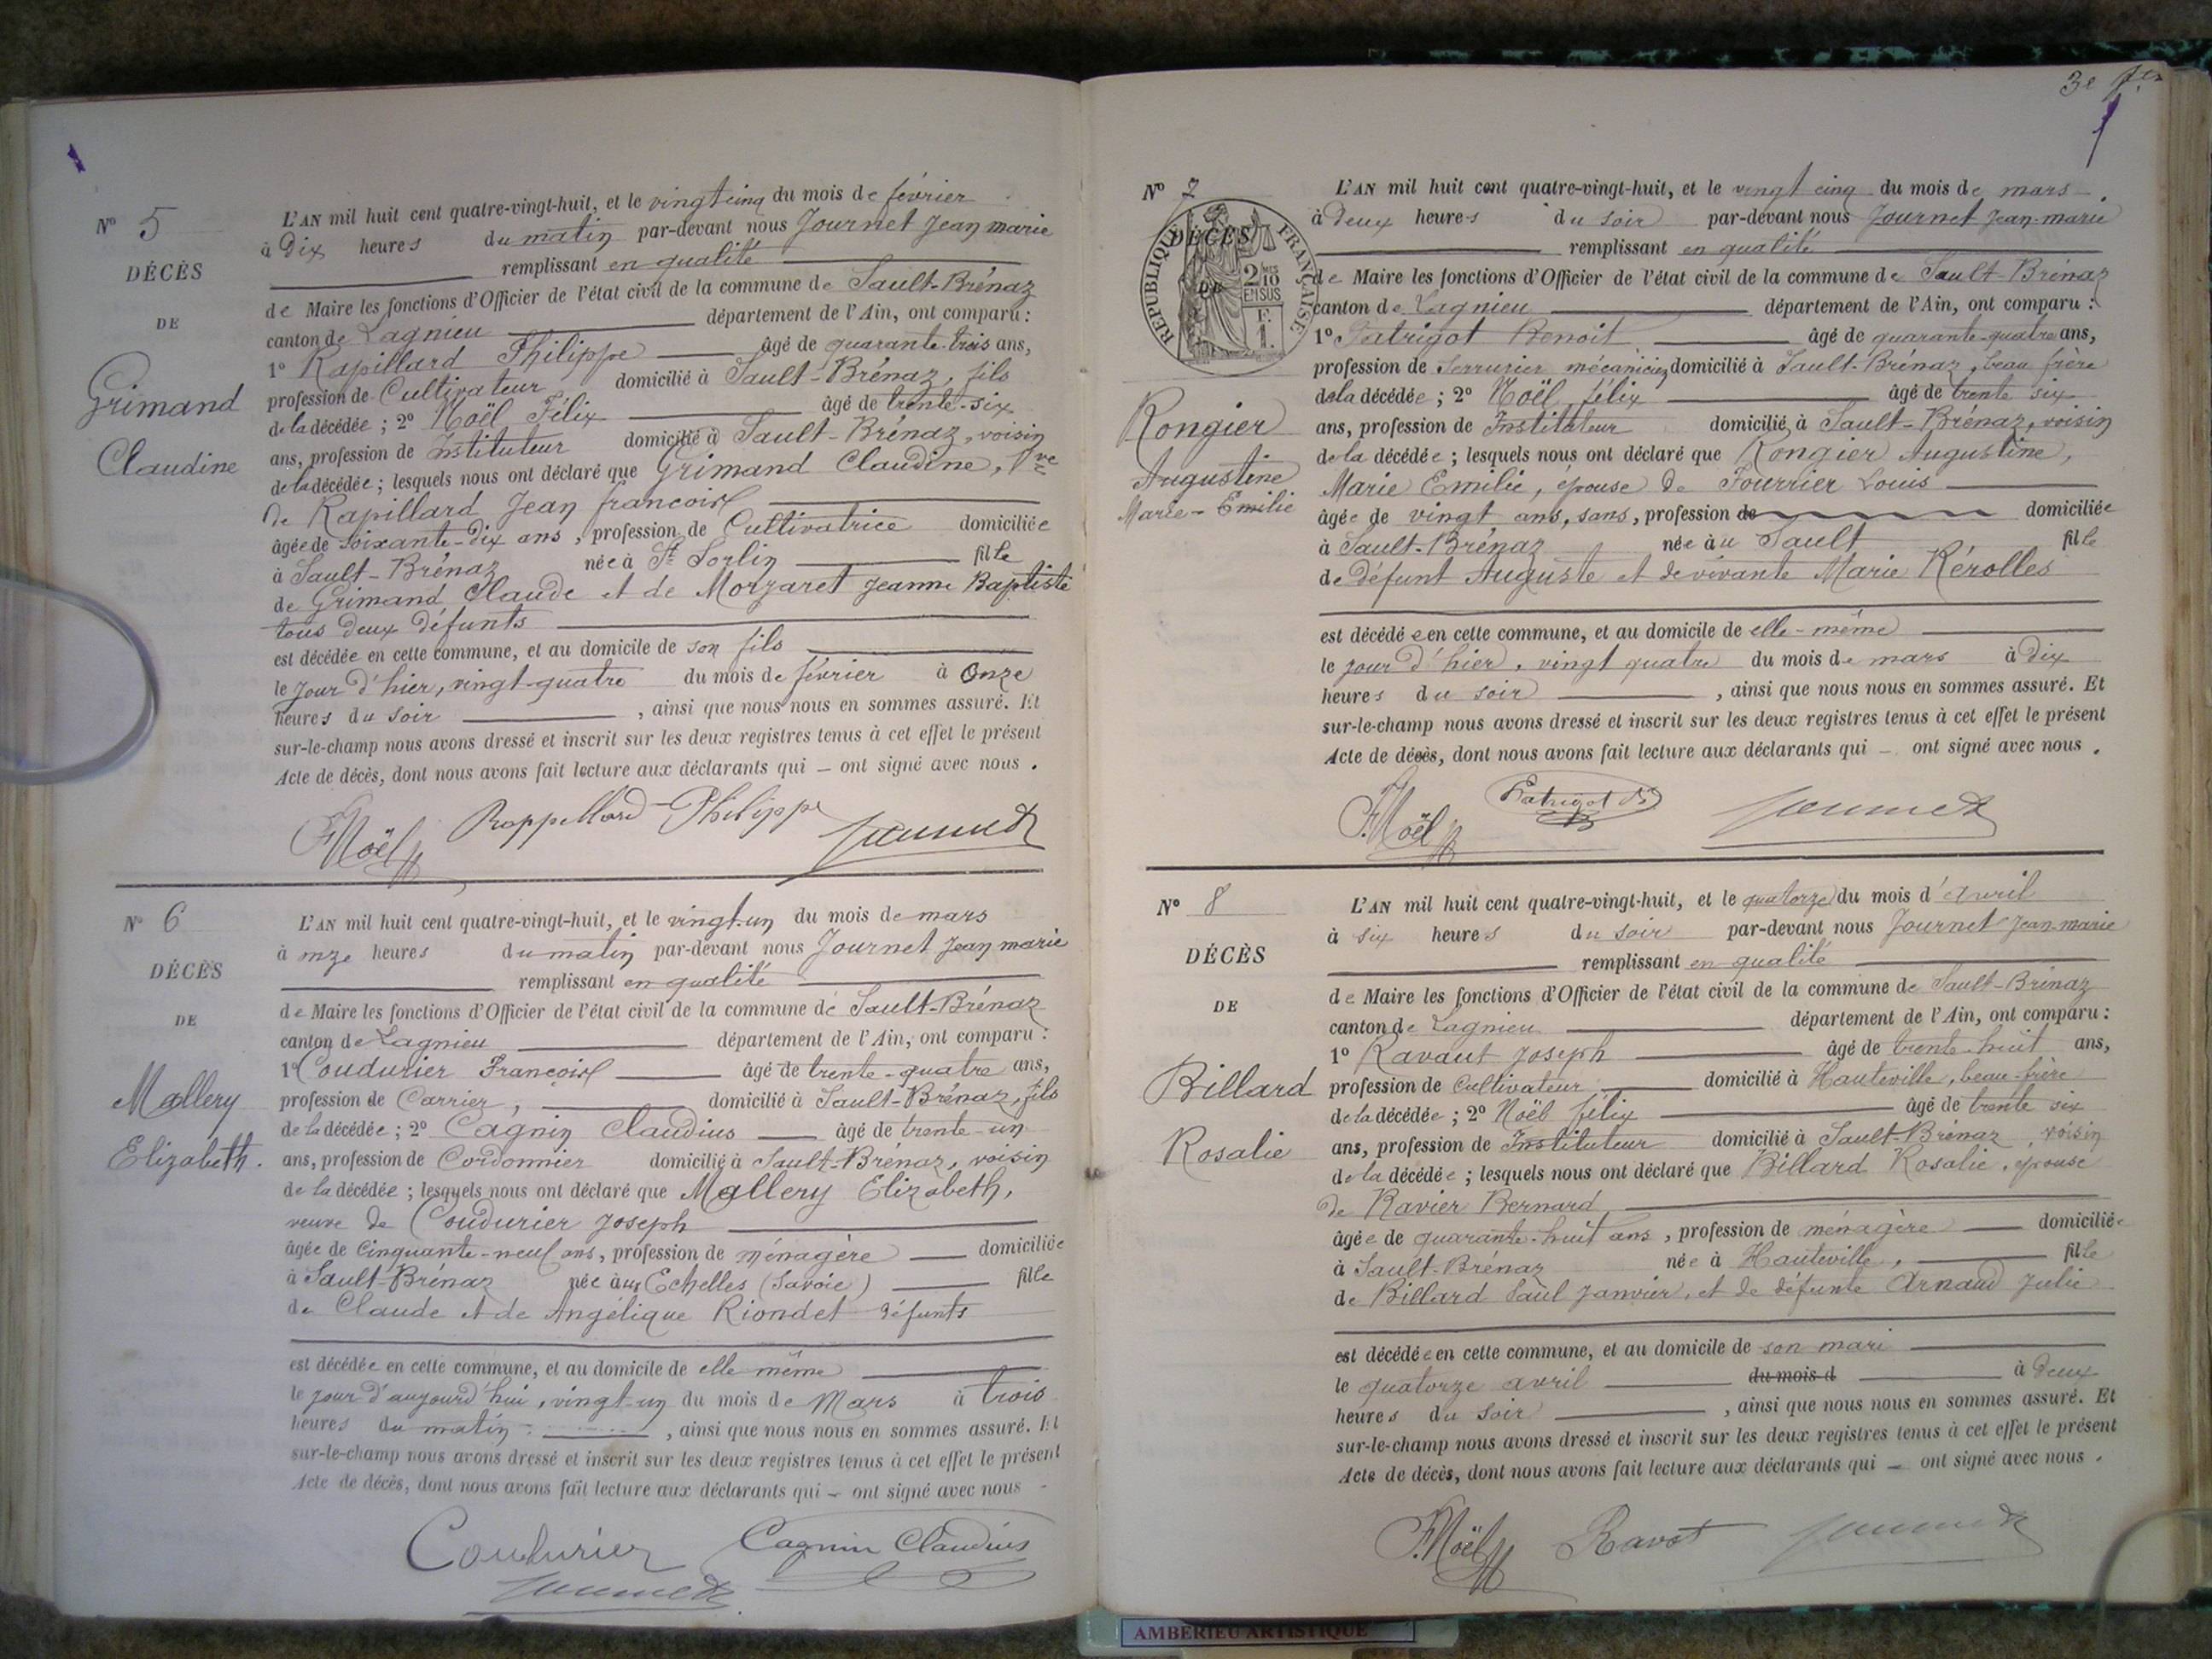 N° 5
DÉCÈS
DE
Grimand
Claudine
L'AN mil huit cent quatre-vingt-huit, et le vingt cinq du mois de février
à Dix heures du matin par-devant nous Journet Jean marie
remplissant en qualité
de Maire les fonctions d'Officier de l'état civil de la commune de Sault-Brénaz
canton de Lagnieu département de l'Ain, ont comparu :
1° Rapillard Philippe âgé de quarante-trois ans,
profession de Cultivateur domicilié à Sault-Brénaz, fils
de la décédée ; 2° Noël Félix âgé de trente-six
ans, profession de Instituteur domicilié à Sault-Brénaz, voisin
de la décédée ; lesquels nous ont déclaré que Grimand Claudine, Vve
de Rapillard Jean françois
âgée de soixante-dix ans, profession de Cultivatrice domiciliée
à Sault-Brénaz née à St Sorlin fille
de Grimand Claude et de Morzaret Jeanne Baptiste
tous deux défunts
est décédée en cette commune, et au domicile de son fils
le jour d'hier, vingt-quatre du mois de février à Onze
heures du soir , ainsi que nous nous en sommes assuré. Et
sur-le-champ nous avons dressé et inscrit sur les deux registres tenus à cet effet le présent
Acte de décès, dont nous avons fait lecture aux déclarants qui — ont signé avec nous .
F. Noël Rappellard Philippe Journet
N° 6
DÉCÈS
DE
Mallery
Elizabeth.
L'AN mil huit cent quatre-vingt-huit, et le vingt-un du mois de mars
à onze heures du matin par-devant nous Journet Jean marie
remplissant en qualité
de Maire les fonctions d'Officier de l'état civil de la commune de Sault-Brénaz
canton de Lagnieu département de l'Ain, ont comparu :
1° Coudurier François âgé de trente-quatre ans,
profession de Carrier, domicilié à Sault-Brénaz, fils
de la décédée ; 2° Cagnin Claudius âgé de trente-un
ans, profession de Cordonnier domicilié à Sault-Brénaz, voisin
de la décédée ; lesquels nous ont déclaré que Mallery Elizabeth,
veuve de Coudurier Joseph
âgée de Cinquante-neuf ans, profession de ménagère domiciliée
à Sault-Brénaz née aux Echelles (Savoie) fille
de Claude et de Angélique Riondet défunts
est décédée en cette commune, et au domicile de elle même
le jour d'aujourd'hui, vingt-un du mois de Mars à trois
heures du matin , ainsi que nous nous en sommes assuré. Et
sur-le-champ nous avons dressé et inscrit sur les deux registres tenus à cet effet le présent
Acte de décès, dont nous avons fait lecture aux déclarants qui — ont signé avec nous
Coudurier Cagnin Claudius
Journet
3e
N° 7
DÉCÈS
DE
RÉPUBLIQUE FRANÇAISE
2/10
EN SUS
F.
1.
Rongier
Augustine
Marie-Emilie
L'AN mil huit cent quatre-vingt-huit, et le vingt cinq du mois de mars
à deux heures du soir par-devant nous Journet Jean-marie
remplissant en qualité
de Maire les fonctions d'Officier de l'état civil de la commune de Sault-Brénaz
canton de Lagnieu département de l'Ain, ont comparu :
1° Patrigot Benoit âgé de quarante-quatre ans,
profession de Serrurier mécanicien domicilié à Sault-Brénaz, beau frère
de la décédée ; 2° Noël félix âgé de trente six
ans, profession de Instituteur domicilié à Sault-Brénaz, voisin
de la décédée ; lesquels nous ont déclaré que Rongier Augustine,
Marie Emilie, épouse de Fourrier Louis
âgée de vingt ans, sans, profession de domiciliée
à Sault-Brénaz née au Sault fille
de défunt Auguste et de vivante Marie Kérolles
est décédée en cette commune, et au domicile de elle-même
le jour d'hier, vingt quatre du mois de mars à dix
heures du soir , ainsi que nous nous en sommes assuré. Et
sur-le-champ nous avons dressé et inscrit sur les deux registres tenus à cet effet le présent
Acte de décès, dont nous avons fait lecture aux déclarants qui — ont signé avec nous .
F. Noël Patrigot Journet
N° 8
DÉCÈS
DE
Billard
Rosalie
L'AN mil huit cent quatre-vingt-huit, et le quatorze du mois d'avril
à six heures du soir par-devant nous Journet Jean-marie
remplissant en qualité
de Maire les fonctions d'Officier de l'état civil de la commune de Sault-Brénaz
canton de Lagnieu département de l'Ain, ont comparu :
1° Ravaut Joseph âgé de trente-huit ans,
profession de Cultivateur domicilié à Hauteville, beau-frère
de la décédée ; 2° Noël félix âgé de trente six
ans, profession de Instituteur domicilié à Sault-Brénaz, voisin
de la décédée ; lesquels nous ont déclaré que Billard Rosalie, épouse
de Ravier Bernard
âgée de quarante-huit ans, profession de ménagère domiciliée
à Sault-Brénaz née à Hauteville, fille
de Billard Paul Janvier, et de défunte Arnaud Julie
est décédée en cette commune, et au domicile de son mari
le quatorze avril du mois d à deux
heures du soir , ainsi que nous nous en sommes assuré. Et
sur-le-champ nous avons dressé et inscrit sur les deux registres tenus à cet effet le présent
Acte de décès, dont nous avons fait lecture aux déclarants qui — ont signé avec nous .
F. Noël Ravot Journet
AMBERIEU ARTISTIQUE